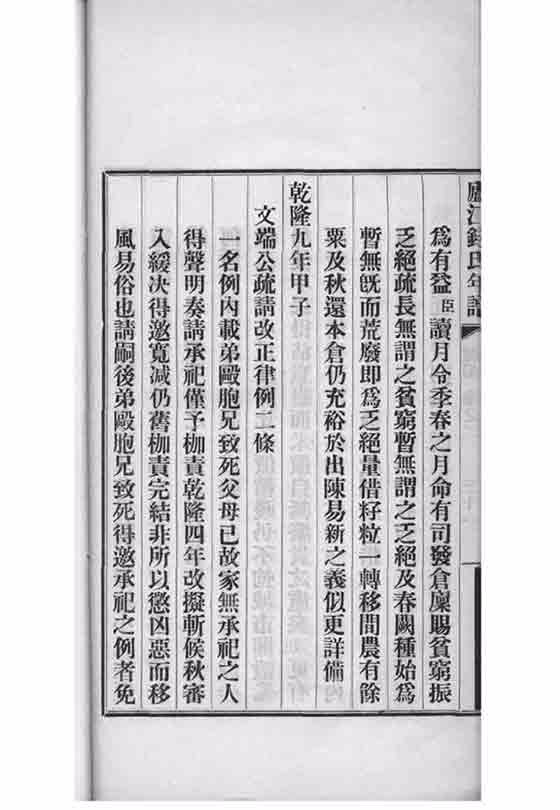 廬江錢氏年譜
為有益臣讀月令季春之月命有司發倉廩賜貧窮振
乏絕疏長無謂之貧窮暫無謂之乏絕及春闕種始為
暫無旣而荒廢即為乏絕量借籽粒一轉移間農有餘
粟及秋還本倉仍充裕於出陳易新之義似更詳備
乾隆九年甲子
文端公疏請改正律例二條
一名例內載弟毆胞兄致死父母已故家無承祀之人
得聲明奏請承祀僅予枷責乾隆四年改擬斬候秋審
入緩決得邀寬減仍舊枷責完結非所以懲凶惡而移
風易俗也請嗣後弟毆胞兄致死得邀承祀之例者免